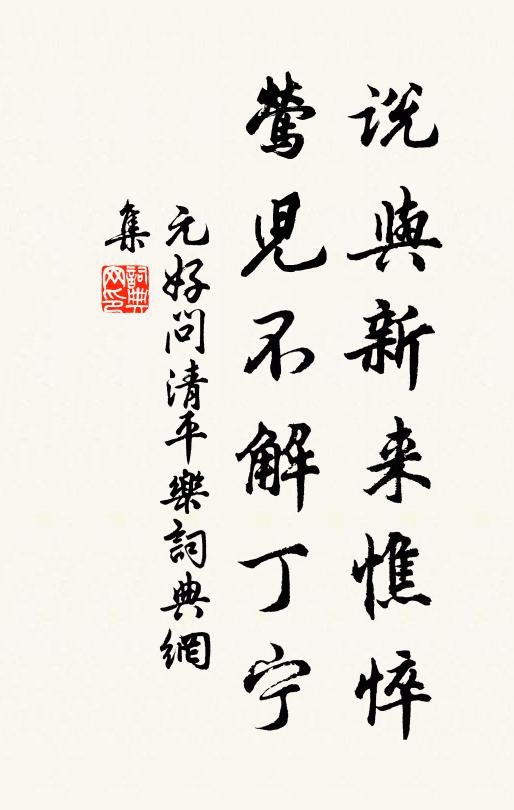 说與新来憔悴
莺児不解丁宁
元好问清平樂詞典網
集
詞典
网印